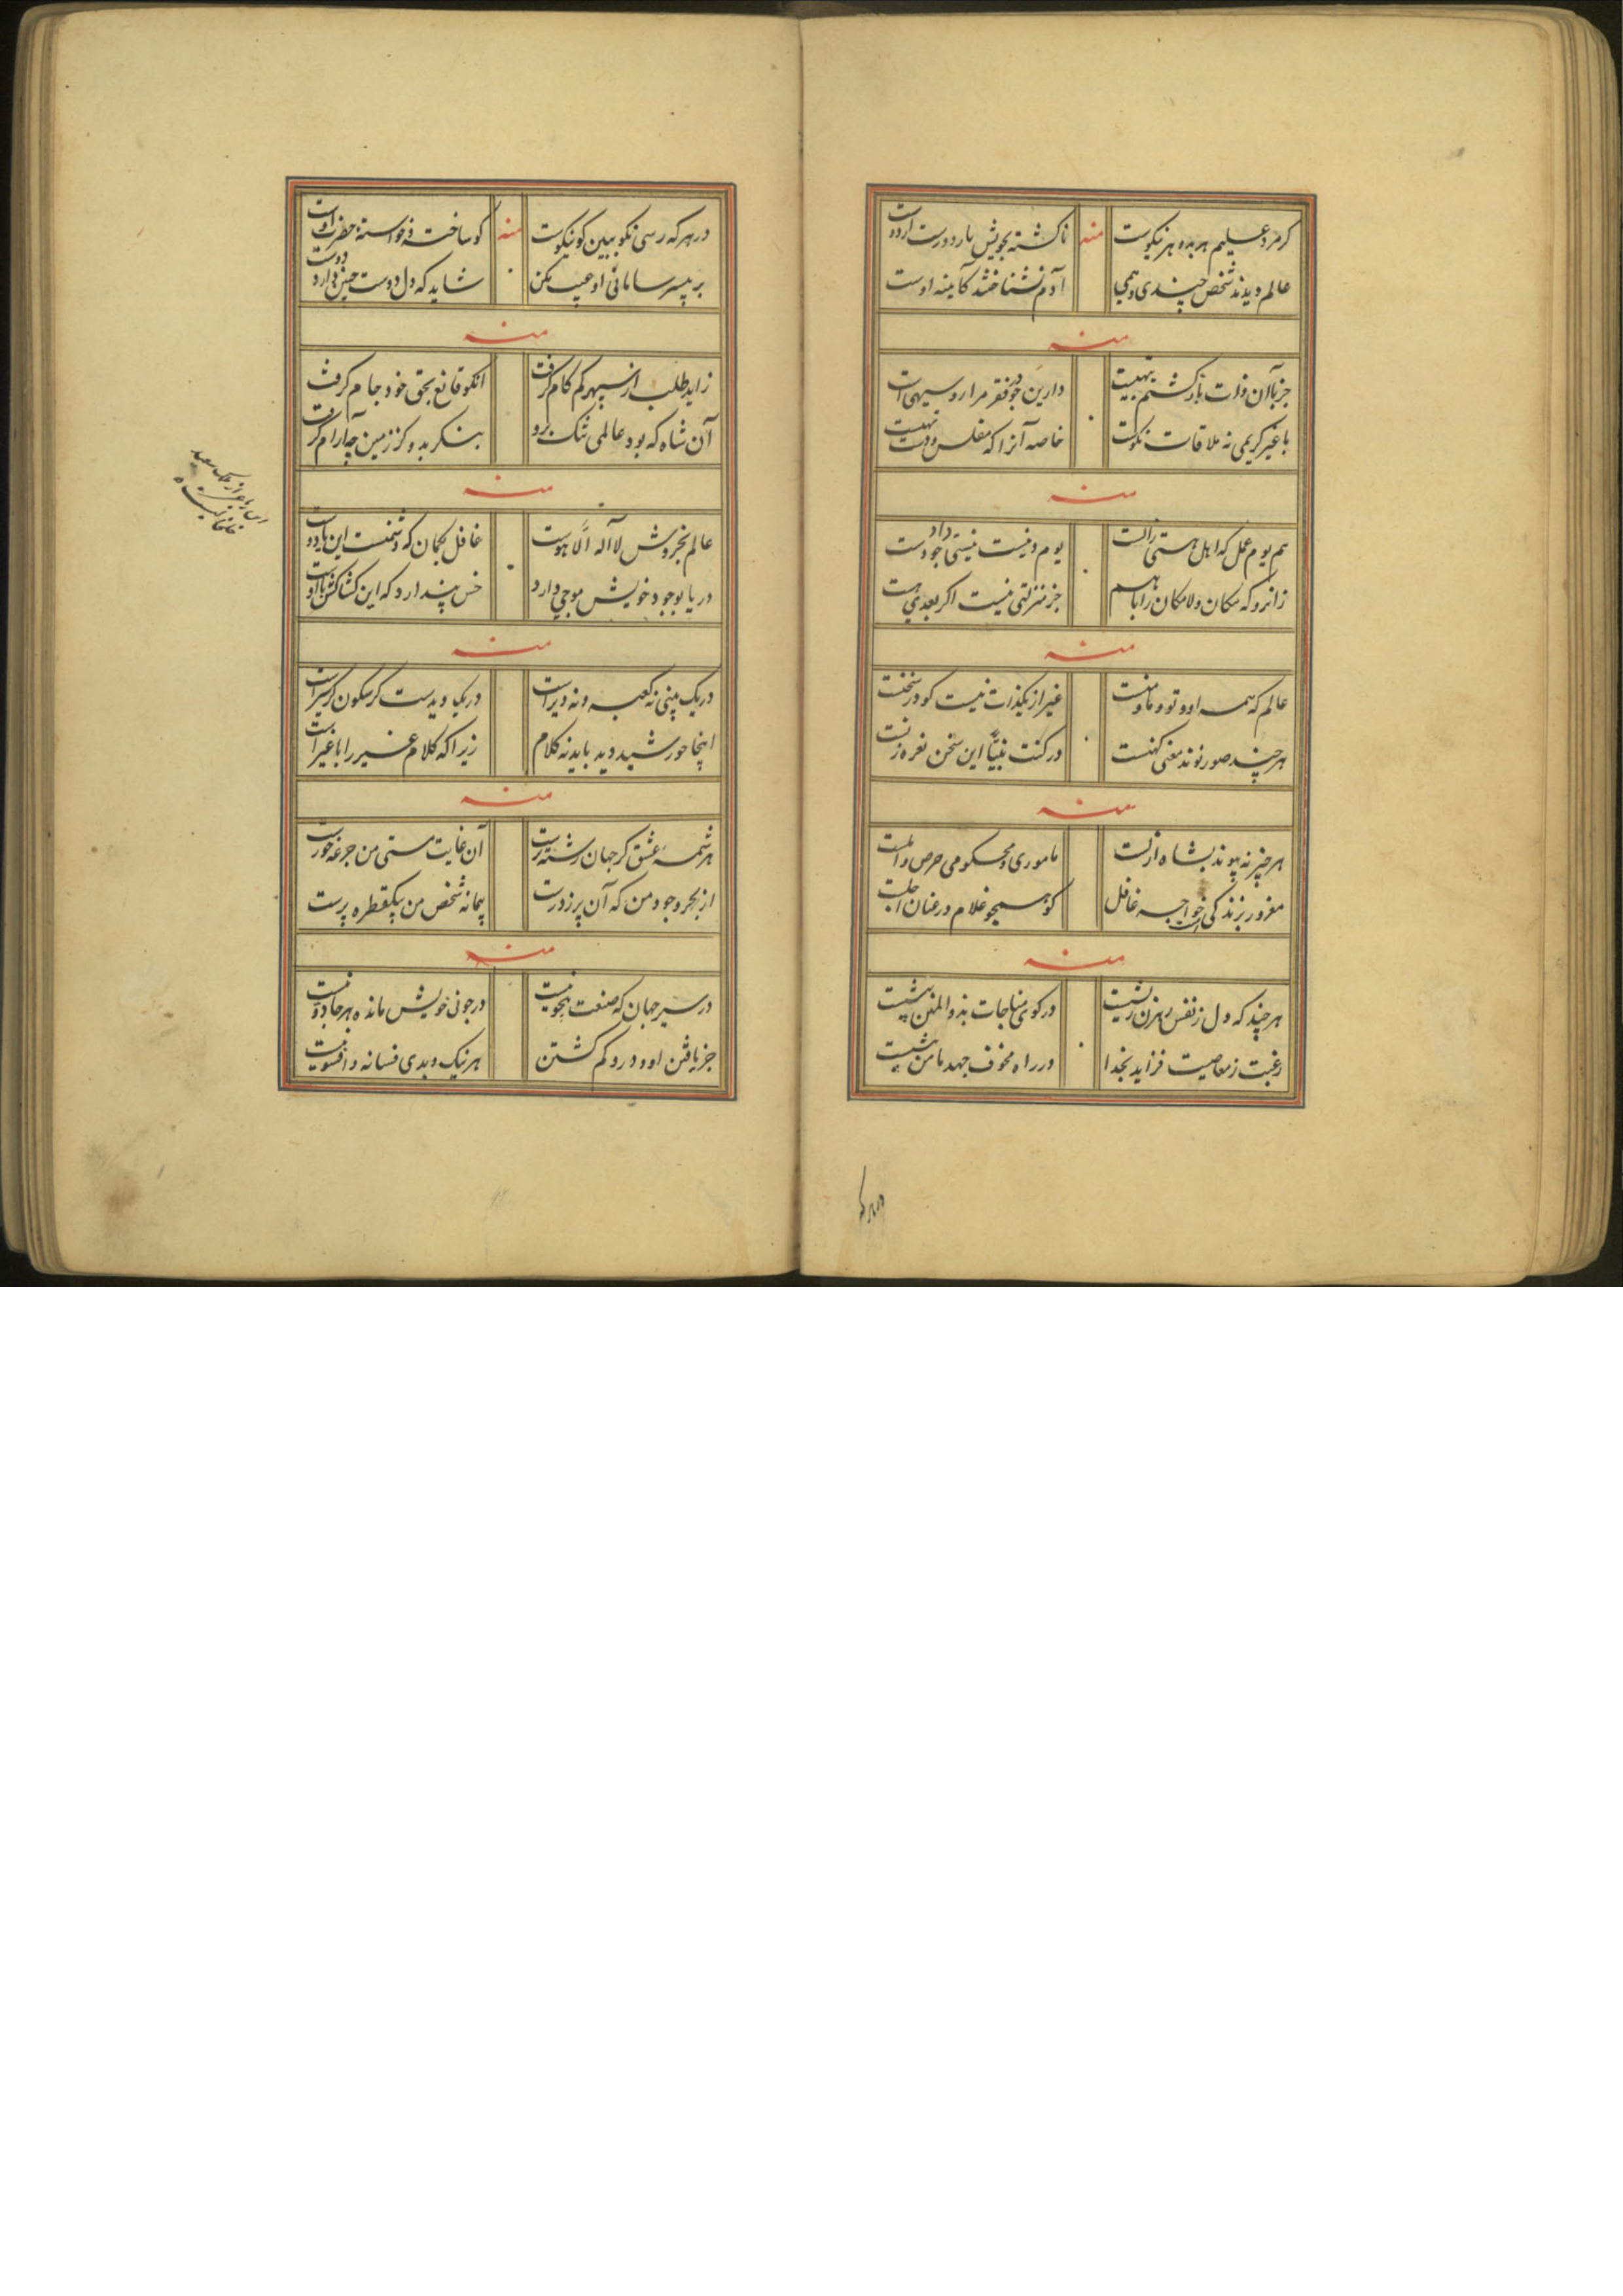 کر مرد علیم هر بد و هر نیکوست
منه
ناکشته بخویش یار دورست از دوست
عالم دیدند شخص چندی و همی
آدم نشناختند کآیینه اوست
منه
جز باآن ذات بازکشتم نیست
دارین چو در فقر مرا روسیهی است
با غیر کریمی نه ملاقات نکوست
خاصه آنرا که مفلس و دست تهیست
منه
هم یوم عمل که اهل هستی
یوم و نیست نیستی داد وجودست
زانرو که مکان و لامکان را باهم
جز منزلتی نیست اگر بعدی هست
منه
عالم که همه او و تو و ما و منست
غیر از یکذات نیست کو در سخنست
هر چند صور نوند معنی کهنست
در کنت نبیاً این سخن نعره زنست
منه
هر چیز نه پیوند بشاه ازلست
ماموری و محکومی حرص و املست
مغرور بزندکی است خواجه غافل
کو همچو غلام در عنان اجلست
منه
هر چند که دل ز نفس رهزن
در کوی مناجات بذوالمنن
رغبت ز معاصیت فزاید بخدا
در راه مخوف جهد مامن بیشست
در هر که رسی نکو ببین کو نیکوست
منه
کو ساخته و خواسته حضرت اوست
بر بیسر سامانی او عیب مکن
شاید که دل دوست چنین دارد دوست
منه
زاید طلب از سپهر کم کام کرفت
انکو قانع بحق خود جام کرفت
آن شاه که بود عالمی تنک برو
بنکر بدو کز زمین چه آرام کرفت
منه
عالم بخروش لا اله الا هوست
غافل بکمان که دشمنست این یا دوست
دریا بوجود خویش موجی دارد
خس پندارد که این کشاکش با اوست
منه
در یک بینی نه کعبه و نه دیر است
در یک دیدست کر سکون کر سیر است
اینجا خورشید دید باید نه کلام
زیرا که کلام غیر را با غیر است
منه
سرچشمه عشق کز جهان رشته رست
آن غایت مستی من جرعه خورست
از بحر وجود من که آن پر ز درست
پیمانه شخص من بیکقطره پرست
منه
در سیر جهان که صنعت نیست
در جوی خویش مانده هر جادویست
جز یافتن او و درو کم کشتن
هر نیک و بدی فسانه و افسونیست